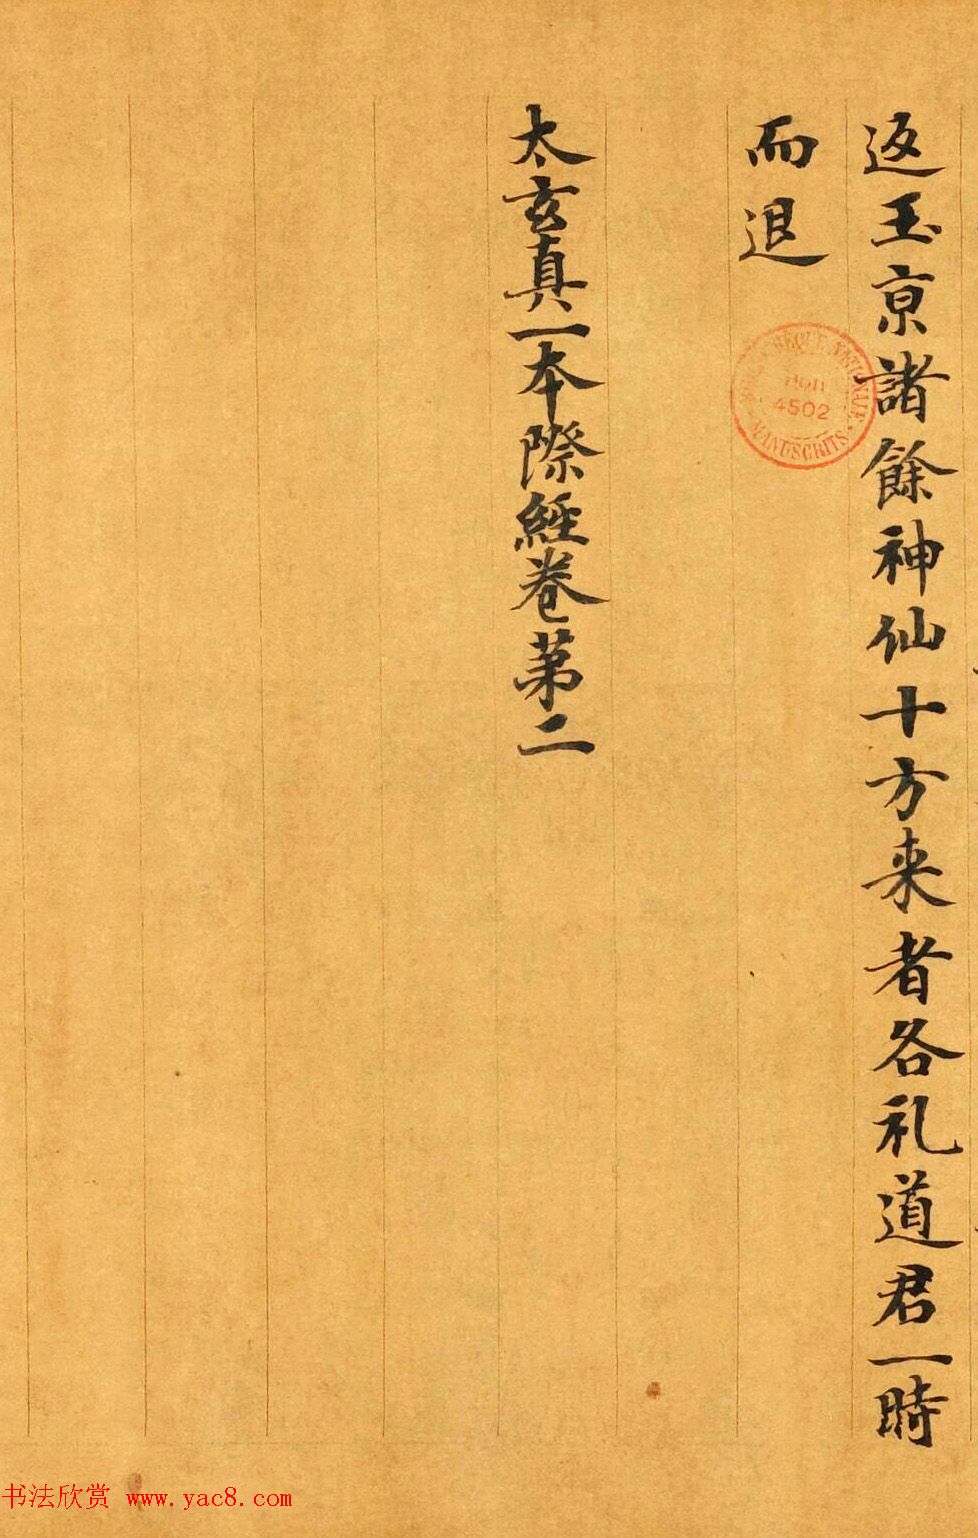 返玉京諸餘神仙十方来者各礼道君一時
而退
太玄真一本際經卷第二
NATIONALE
4502
MANUSCRITS
书法欣赏 www.yac8.com